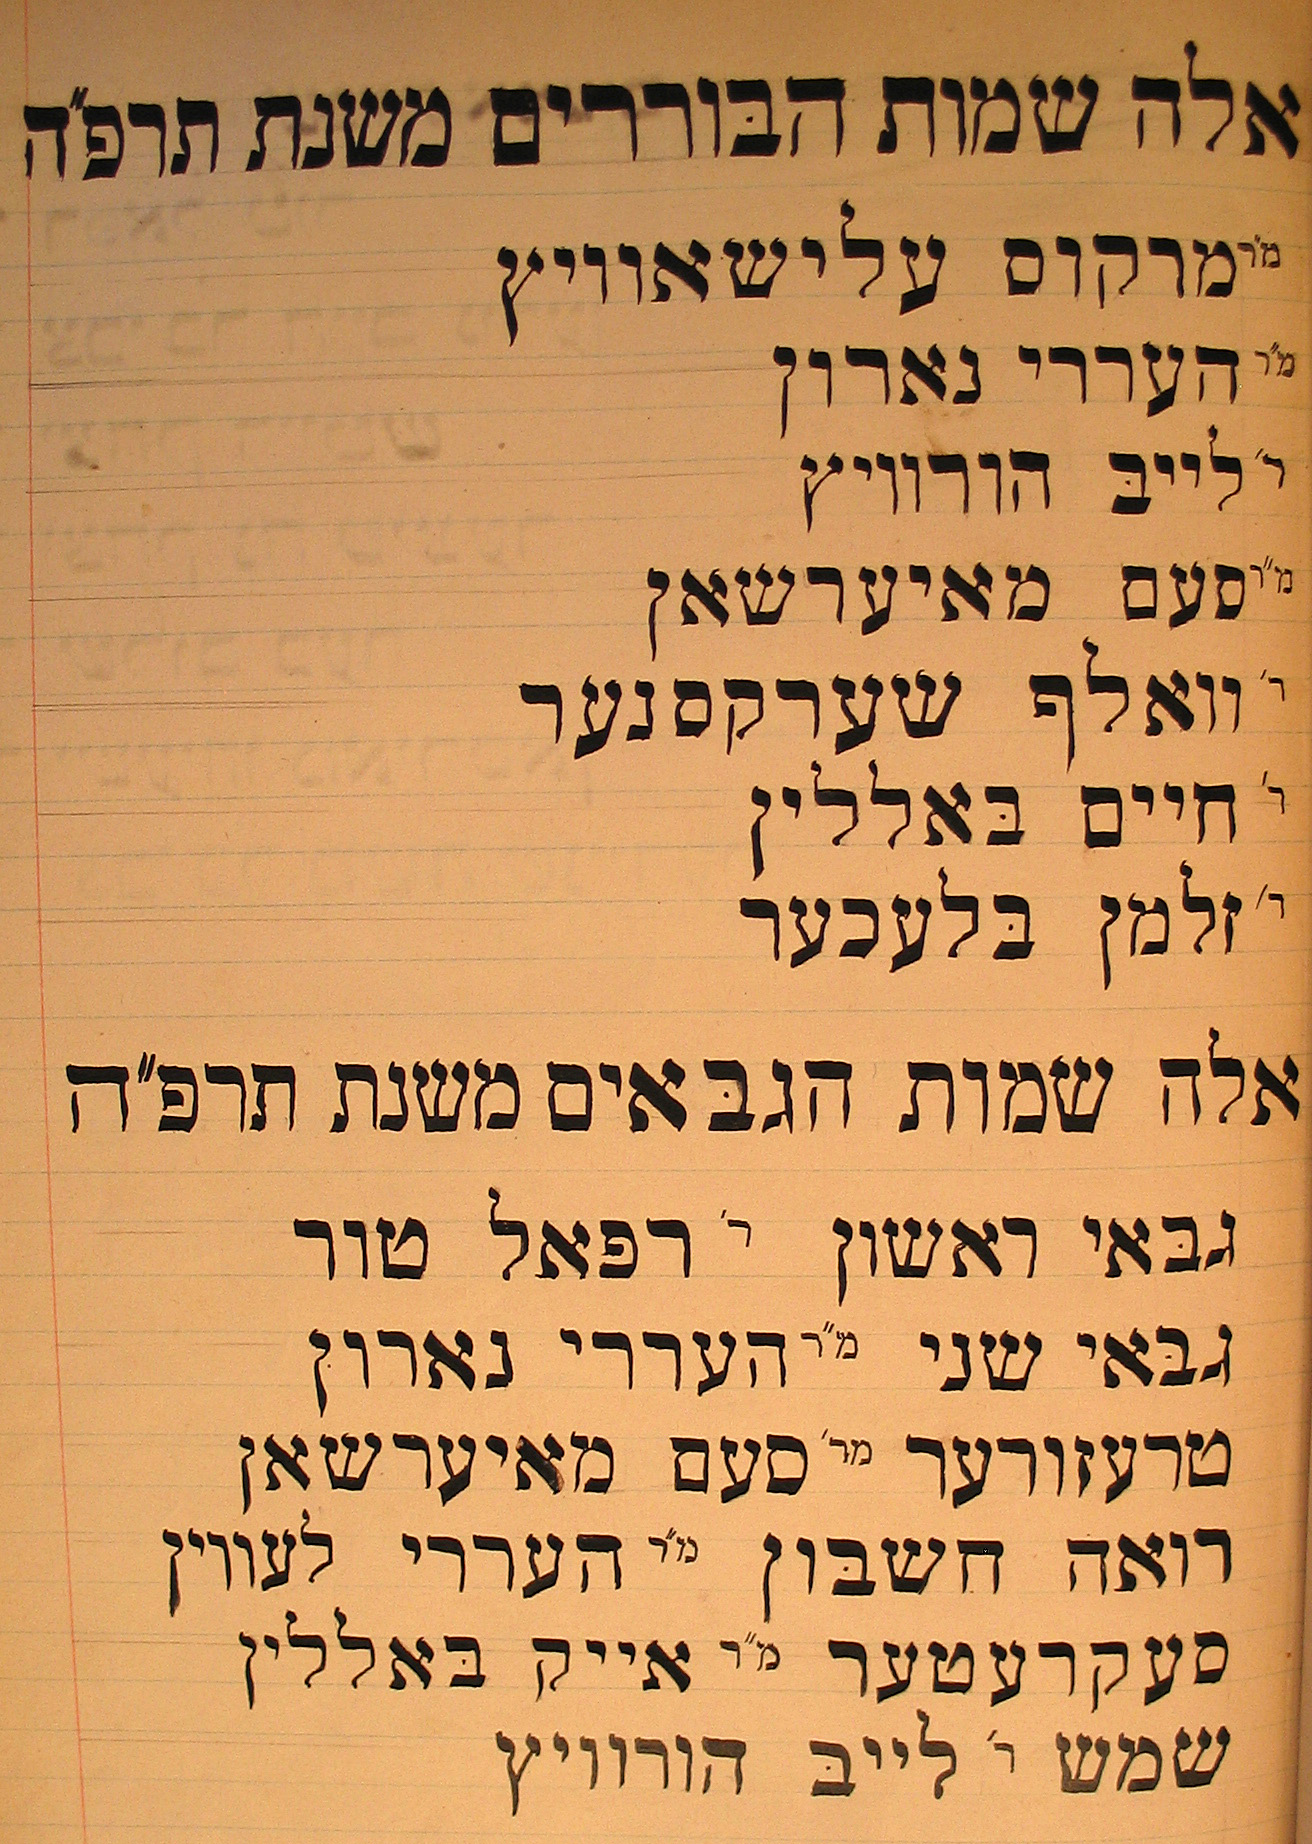 אלה שמות הבוררים משנת תרפ״ה
מ״ר מרקוס עלישאוויץ
מ״ר העררי נארון
ר׳ לייב הורוויץ
מ״ר סעם מאיערשאן
ר׳ וואלף שערקסנער
ר׳ חיים באללין
ר׳ זלמן בלעכער
אלה שמות הגבאים משנת תרפ״ה
גבאי ראשון ר׳ רפאל טור
גבאי שני מ״ר העררי נארון
טרעזורער מר׳ סעם מאיערשאן
רואה חשבון מ״ר העררי לעווין
סעקרעטער מ״ר אייק באללין
שמש ר׳ לייב הורוויץ